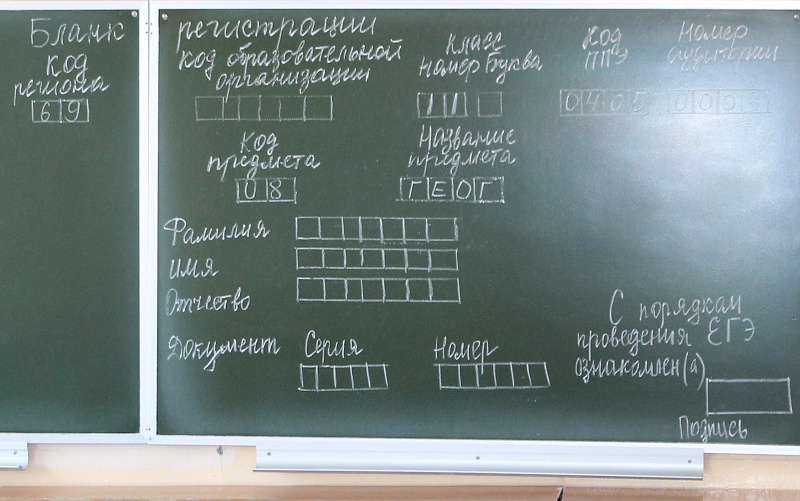 Бланк
код
региона
69
регистрации
код образовательной
организации
Класс
Номер Буква
11
Код
ППЭ
0405
Номер
аудитории
Код
предмета
08
Название
предмета
ГЕОГ
Фамилия
имя
Отчество
Документ
Серия
Номер
С порядкам
проведения ЕГЭ
ознакомлен(а)
Подпись